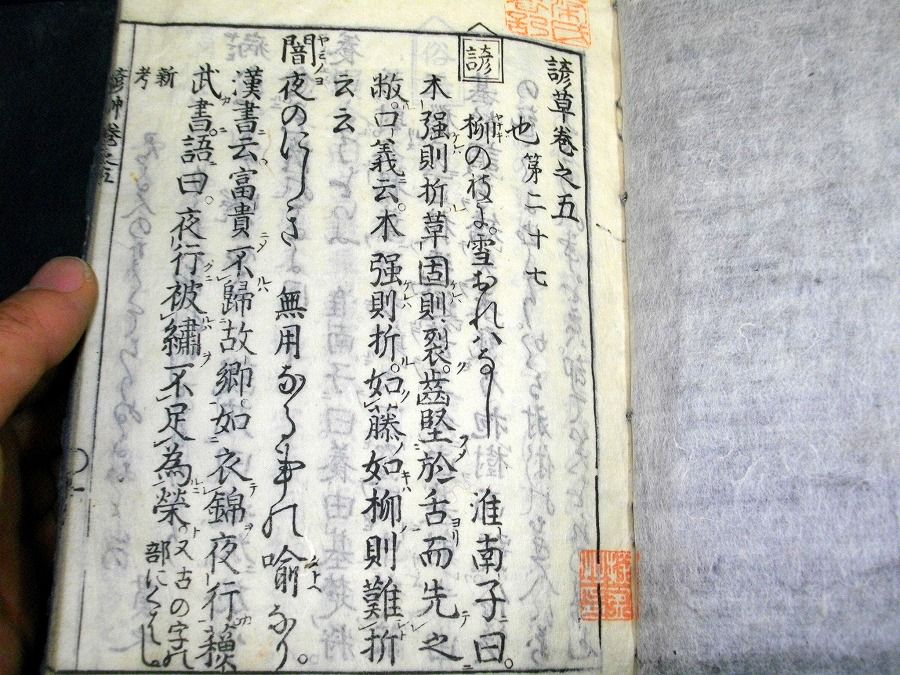 諺草巻之五
也 第二十七
諺
柳の枝に雪おれハなし 淮南子曰。
木强則折草固則裂。齒堅於舌而先之
敝。口義云。木强則折。如藤如柳則難折
云云
闇夜のにしき 無用なる事の喩なり。
漢書云富貴不歸故郷如衣錦夜行
武書。語曰。夜行被繡不足為榮。又古の字の
部にくはし。
新
考
諺艸巻之五